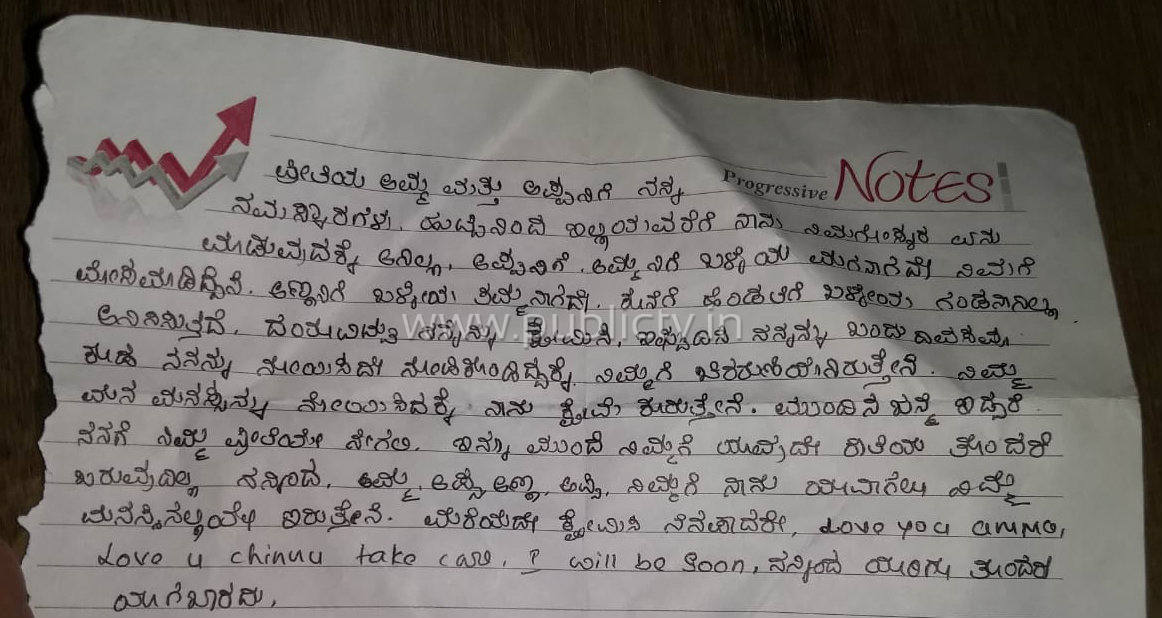 Progressive NOTES
ಪ್ರೀತಿಯ ಅಮ್ಮ ಮತ್ತು ಅಪ್ಪನಿಗೆ ನನ್ನ
ನಮಸ್ಕಾರಗಳು. ಹುಟ್ಟಿನಿಂದ ಇಲ್ಲಿಯಾವರೆಗೆ ನಾನು ನಿಮಗೋಸ್ಕರ ಏನು
ಮಾಡುವುದಕ್ಕೆ ಆಗಿಲ್ಲಾ, ಅಪ್ಪನಿಗೆ, ಅಮ್ಮನಿಗೆ ಒಳ್ಳೆಯ ಮಗನಾಗದೇ ನಿಮಗೆ
ಮೋಸಮಾಡಿದ್ದೇನೆ. ಅಣ್ಣನಿಗೆ ಒಳ್ಳೇಯಾ ತಮ್ಮನಾಗದೇ. ಕೊನೆಗೆ ಹೆಂಡತಿಗೆ ಒಳ್ಳೇಯಾ ಗಂಡನಾಗಿಲ್ಲಾ
ಅನಿಸುತ್ತದೆ. ದಯವಿಟ್ಟು ನನ್ನನ್ನು ಕ್ಷಮಿಸಿ, ಇಷ್ಟುದಿನ ನನ್ನನ್ನು ಒಂದು
www.publictv.in
ಕೂಡ ನನನ್ನು ನೋಯಿಸದೇ ನೋಡಿಕೊಂಡಿದ್ದಕ್ಕೆ ನಿಮ್ಮಗೆ ಚಿರಋಣಿಯಾಗಿರುತ್ತೇನೆ. ನಿಮ್ಮ
ಮನ ಮನಸ್ಸನ್ನು ನೋಯಿಸಿದಕ್ಕೆ ನಾನು ಕ್ಷಮೆ ಕೋರುತ್ತೇನೆ. ಮುಂದಿನ ಜನ್ಮ ಇದ್ದರೆ
ನನಗೆ ನಿಮ್ಮ ಪ್ರೀತಿಯೇ ಸೀಗಲಿ. ಇನ್ನು ಮುಂದೆ ನಿಮ್ಮಗೆ ಯಾವುದೇ ರೀತಿಯ ತೊಂದರೆ
ಬರುವುದಿಲ್ಲಾ ನನ್ನಿಂದ, ಅಮ್ಮ, ಅಪ್ಪ, ಅಣ್ಣ, ನಿಮ್ಮಗೆ ನಾನು ಯಾವಾಗಲು ನಿಮ್ಮ
ಮನಸ್ಸಿನಲ್ಲಿಯೇ ಇರುತ್ತೇನೆ. ಮರೆಯದೇ ಕ್ಷಮಿಸಿ ನೆನಪಾದರೇ, Love you amma,
Love u chinnu take care. I will be soon, ನನ್ನಿಂದ ಯಾರಿಗು ತೊಂದರೆ
ಯಾಗಬಾರದು.